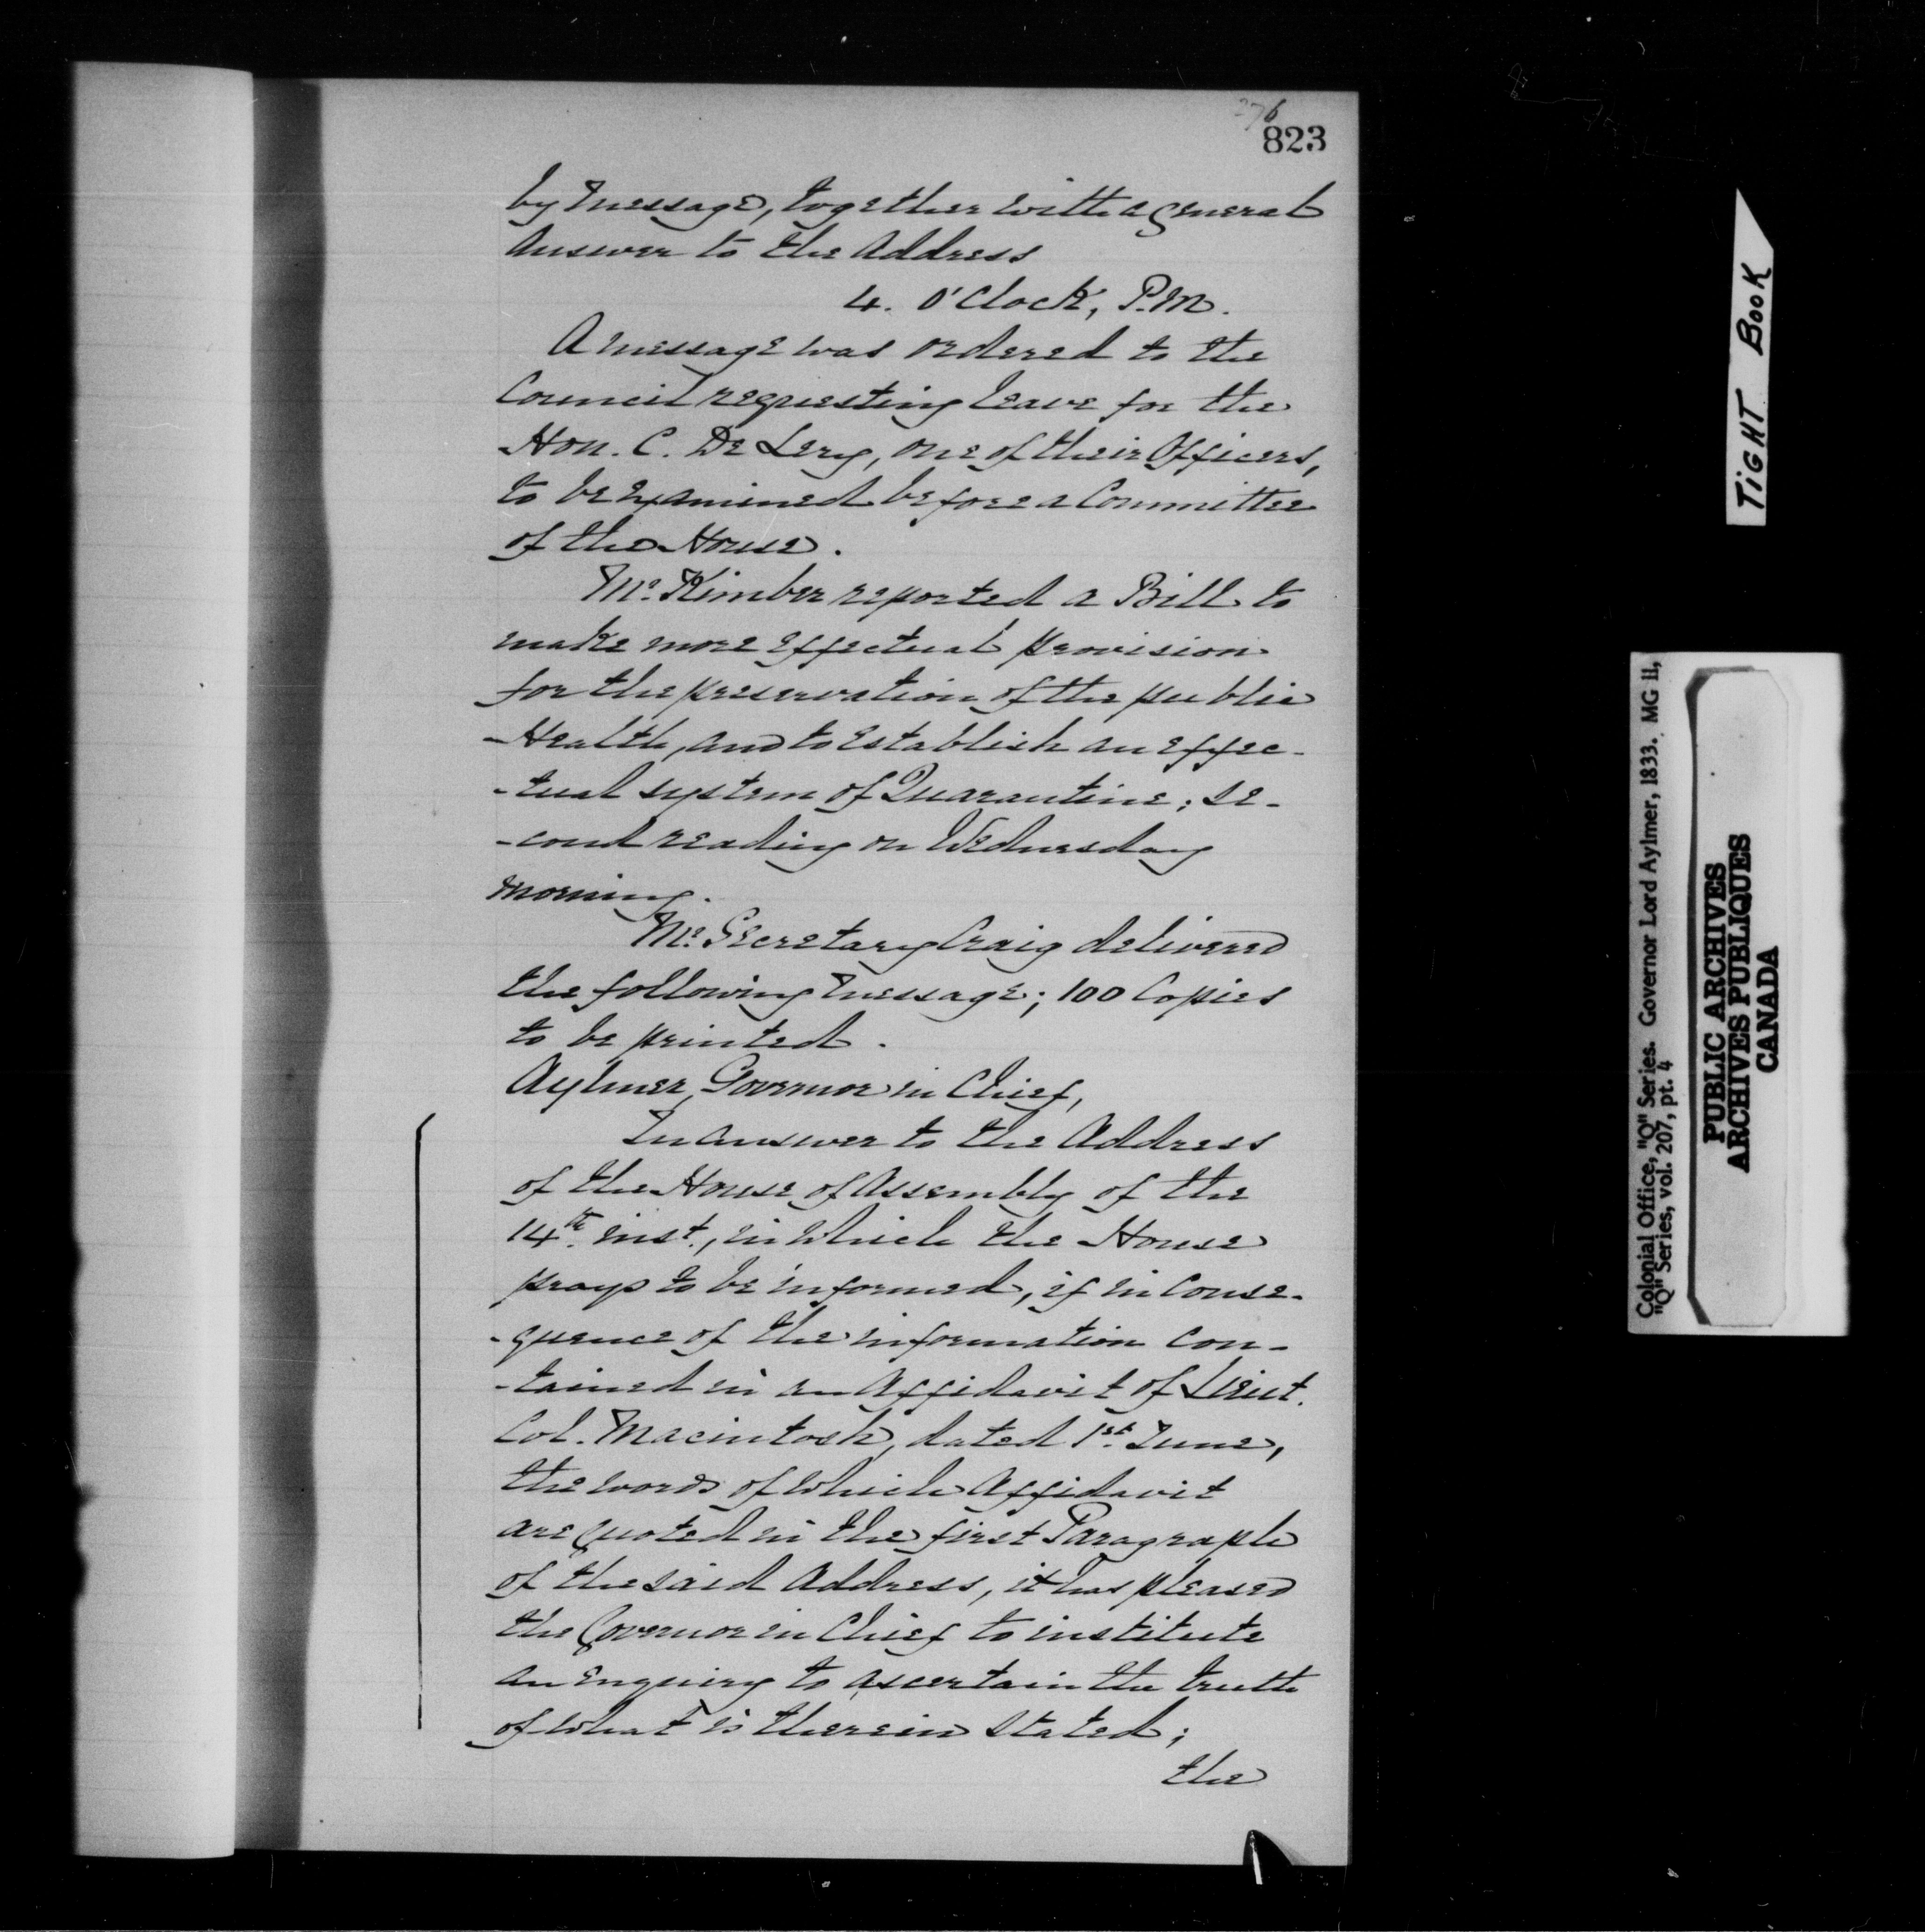 276
823
by Message, together with a General
Answer to the Address
4. O'Clock, P.M.
A Message was ordered to the
Council requesting leave for the
Hon. C. De Lery, one of their Officers,
to be Examined before a Committee
of the House.
Mr. Kimber reported a Bill to
make more Effectual provision
for the preservation of the public
Health, and to Establish an effec-
-tual system of Quarantine; se-
-cond reading on Wednesday
Morning.
Mr. Secretary Craig delivered
the following Message; 100 Copies
to be printed.
Aylmer, Governor in Chief,
In answer to the Address
of the House of Assembly of the
14th. inst., in which the House
prays to be informed, if in Conse-
-quence of the information con-
-tained in an Affidavit of Lieut.
Col. Macintosh, dated 1st. June,
the words of which Affidavit
are quoted in the first Paragraph
of the said Address, it has pleased
the Governor in Chief to institute
an Enquiry to ascertain the truth
of what is therein stated;
the
TIGHT BOOK
Colonial Office, "Q" Series. Governor Lord Aylmer, 1833. MG 11,
"Q" Series, vol. 207, pt. 4
PUBLIC ARCHIVES
ARCHIVES PUBLIQUES
CANADA